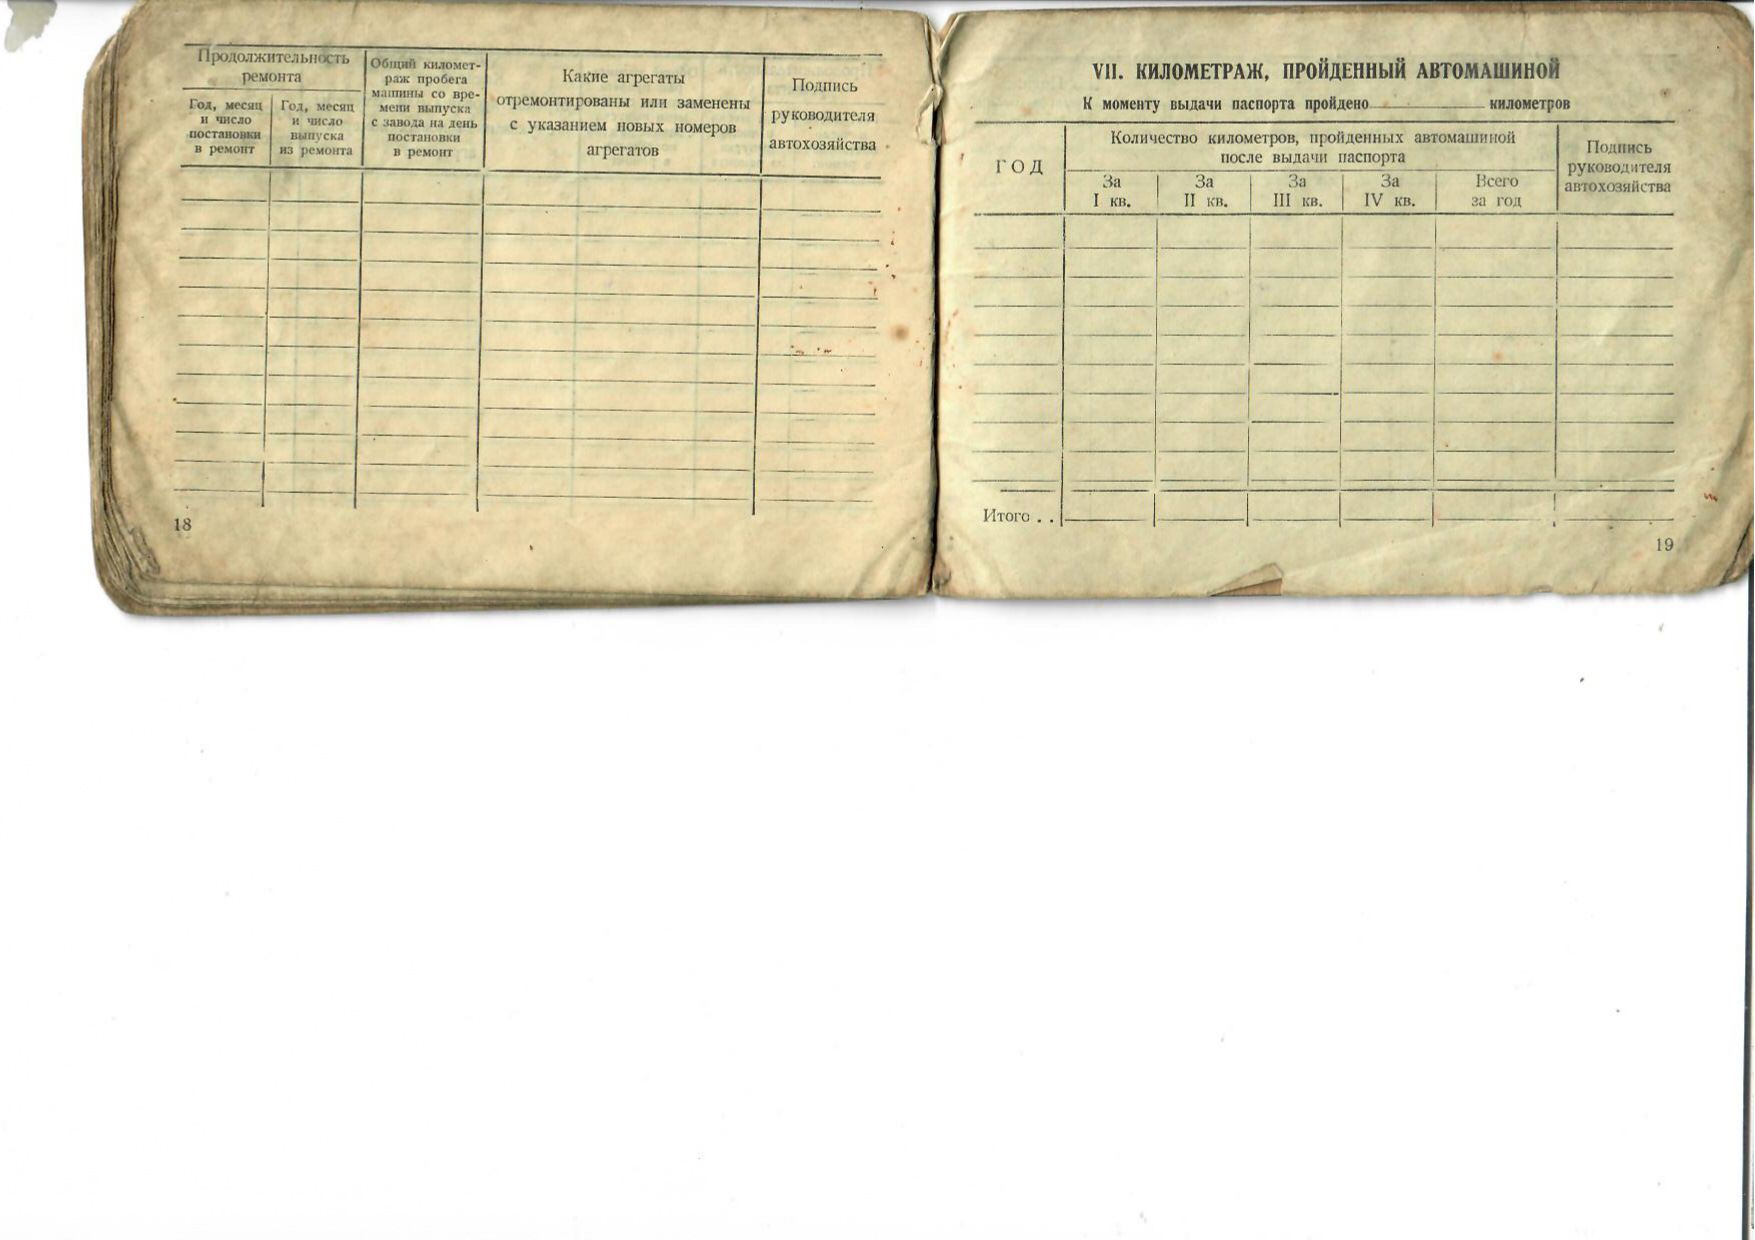 Продолжительность
ремонта
Год, месяц
и число
постановки
в ремонт
Год, месяц
и число
выпуска
из ремонта
Общий километ-
раж пробега
машины со вре-
мени выпуска
с завода на день
постановки
в ремонт
Какие агрегаты
отремонтированы или заменены
с указанием новых номеров
агрегатов
Подпись
руководителя
автохозяйства
18
VII. КИЛОМЕТРАЖ, ПРОЙДЕННЫЙ АВТОМАШИНОЙ
К моменту выдачи паспорта пройдено километров
ГОД
Количество километров, пройденных автомашиной
после выдачи паспорта
За
I кв.
За
II кв.
За
III кв.
За
IV кв.
Всего
за год
Подпись
руководителя
автохозяйства
Итого . .
19